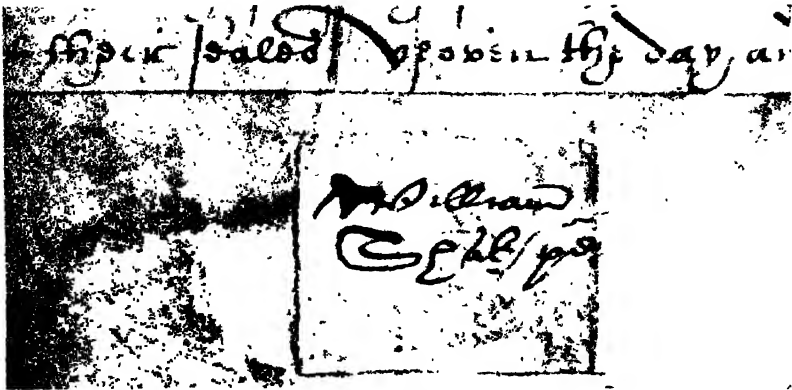 their seales yeoven the day, an
William
Shakspē